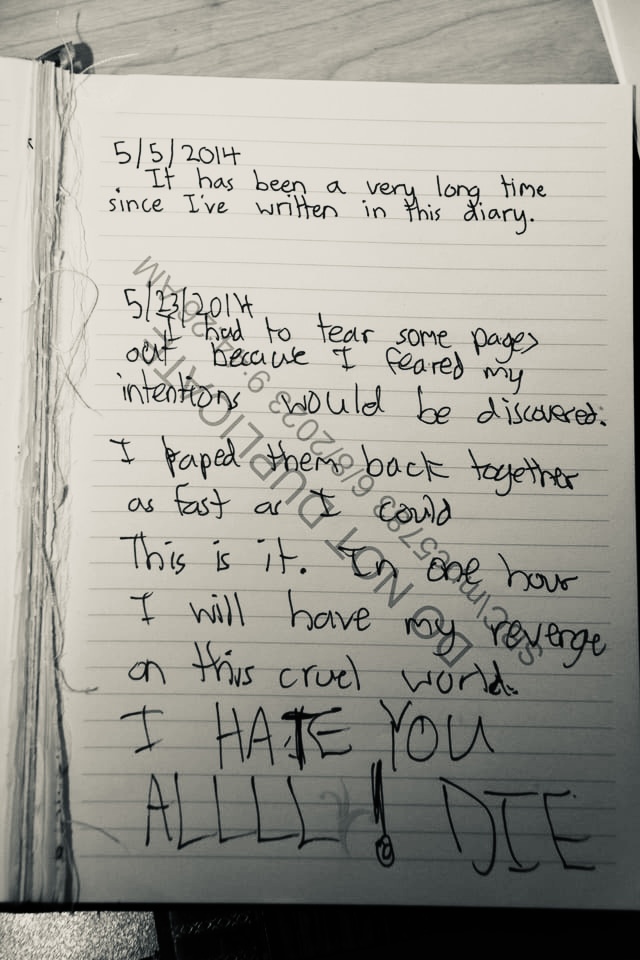 5/5/2014
It has been a very long time
since I've written in this diary.
5/23/2014
I had to tear some pages
out because I feared my
intentions would be discovered.
I taped them back together
as fast as I could
This is it. In one hour
I will have my revenge
on this cruel world.
I HATE YOU
ALLLL! DIE
DO NOT DUPLICATE